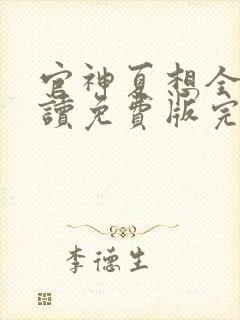 官神夏想全
讀免費版完
李德生